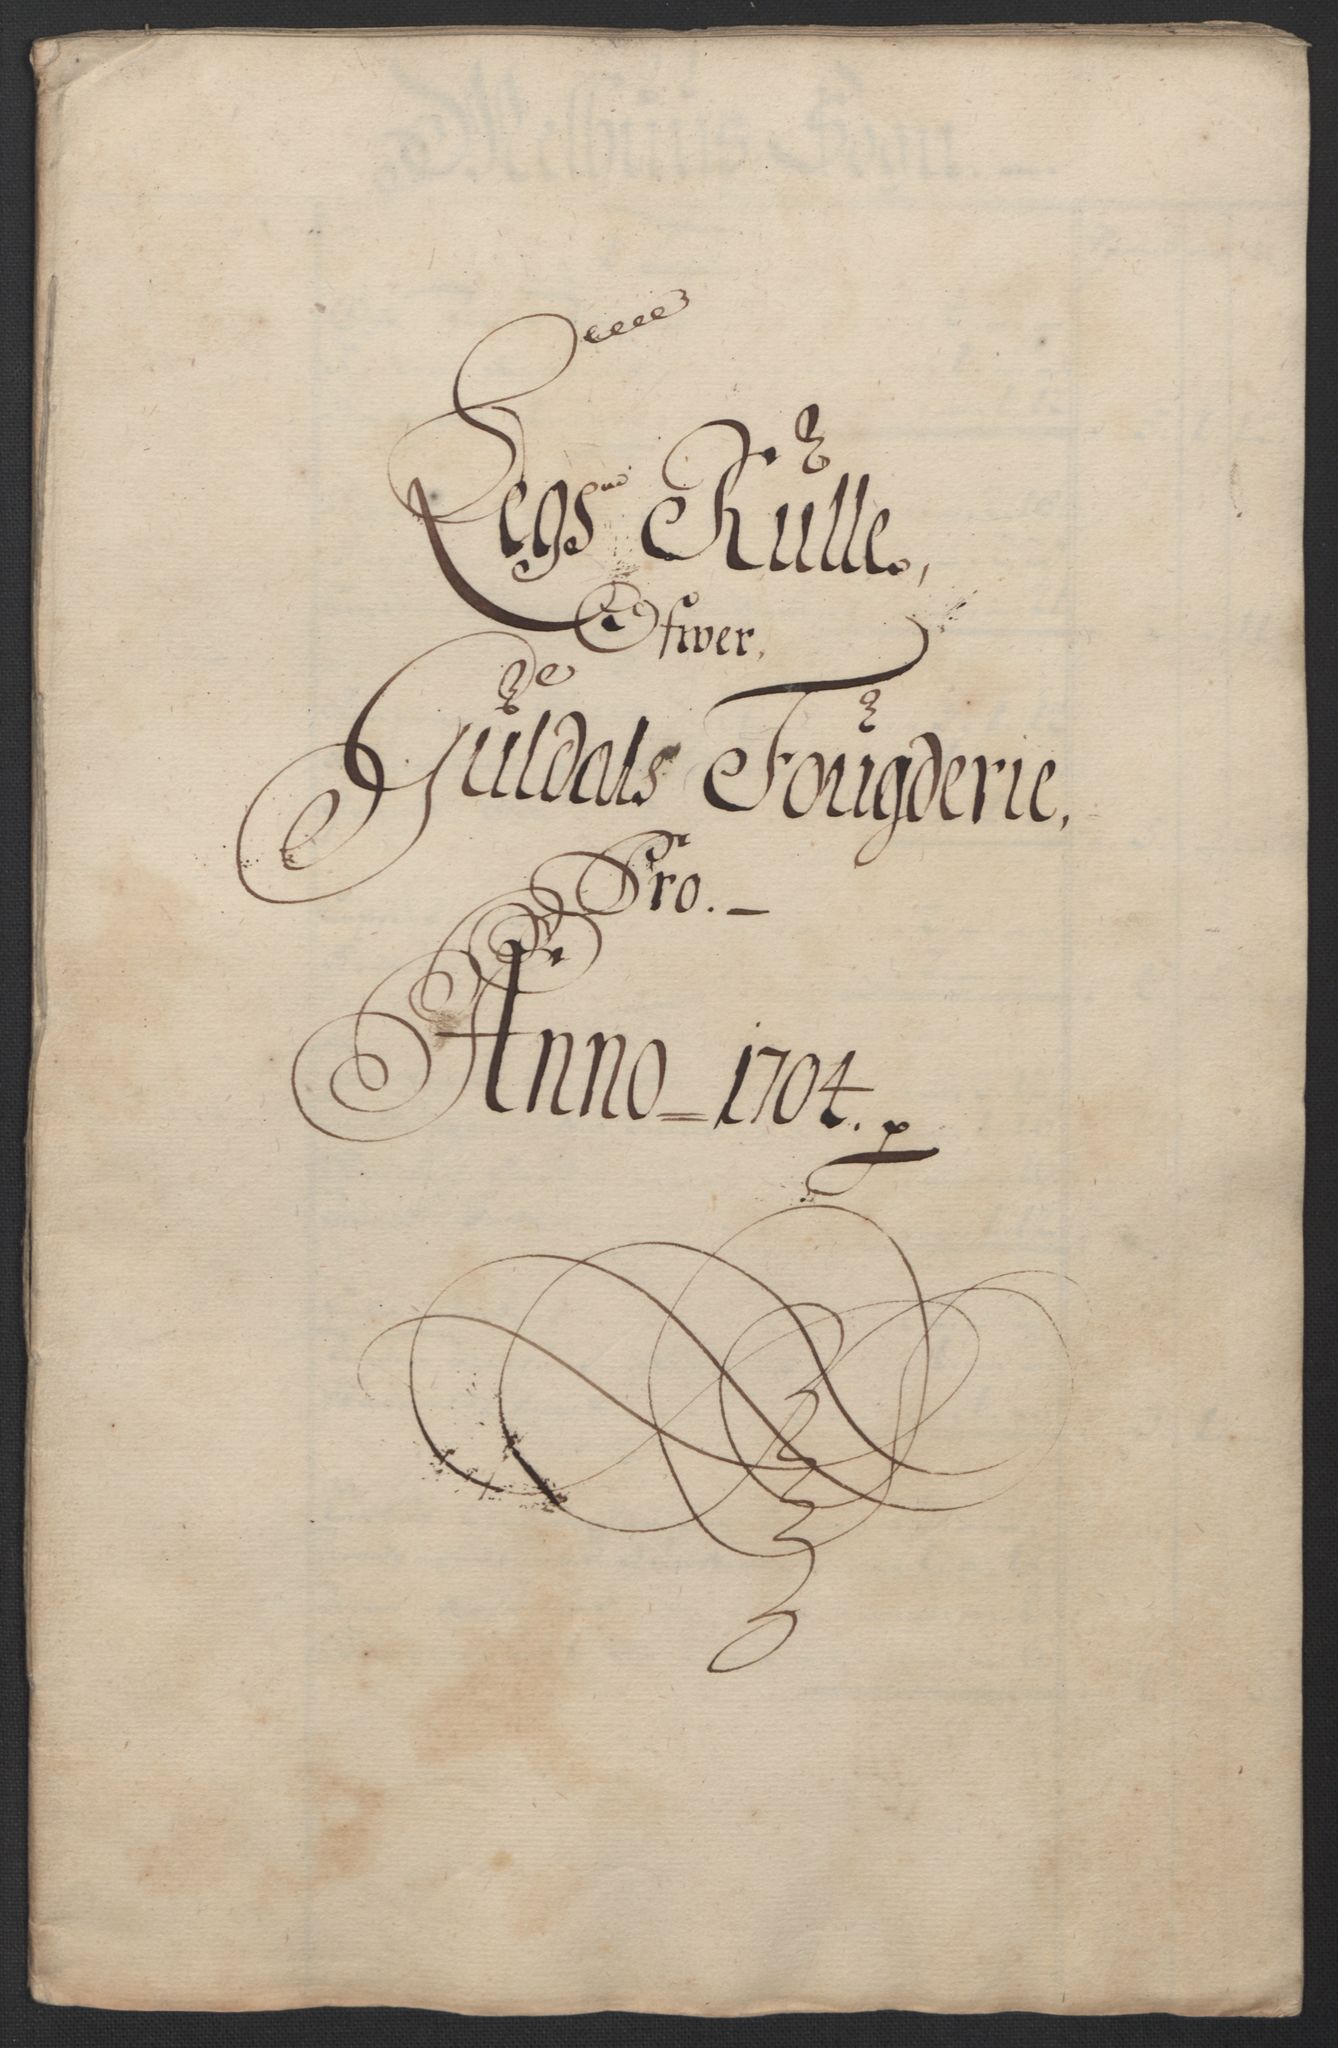 Legs Rulle,
Ofwer,
Guldals Fougderie,
Pro.
Anno 1704.